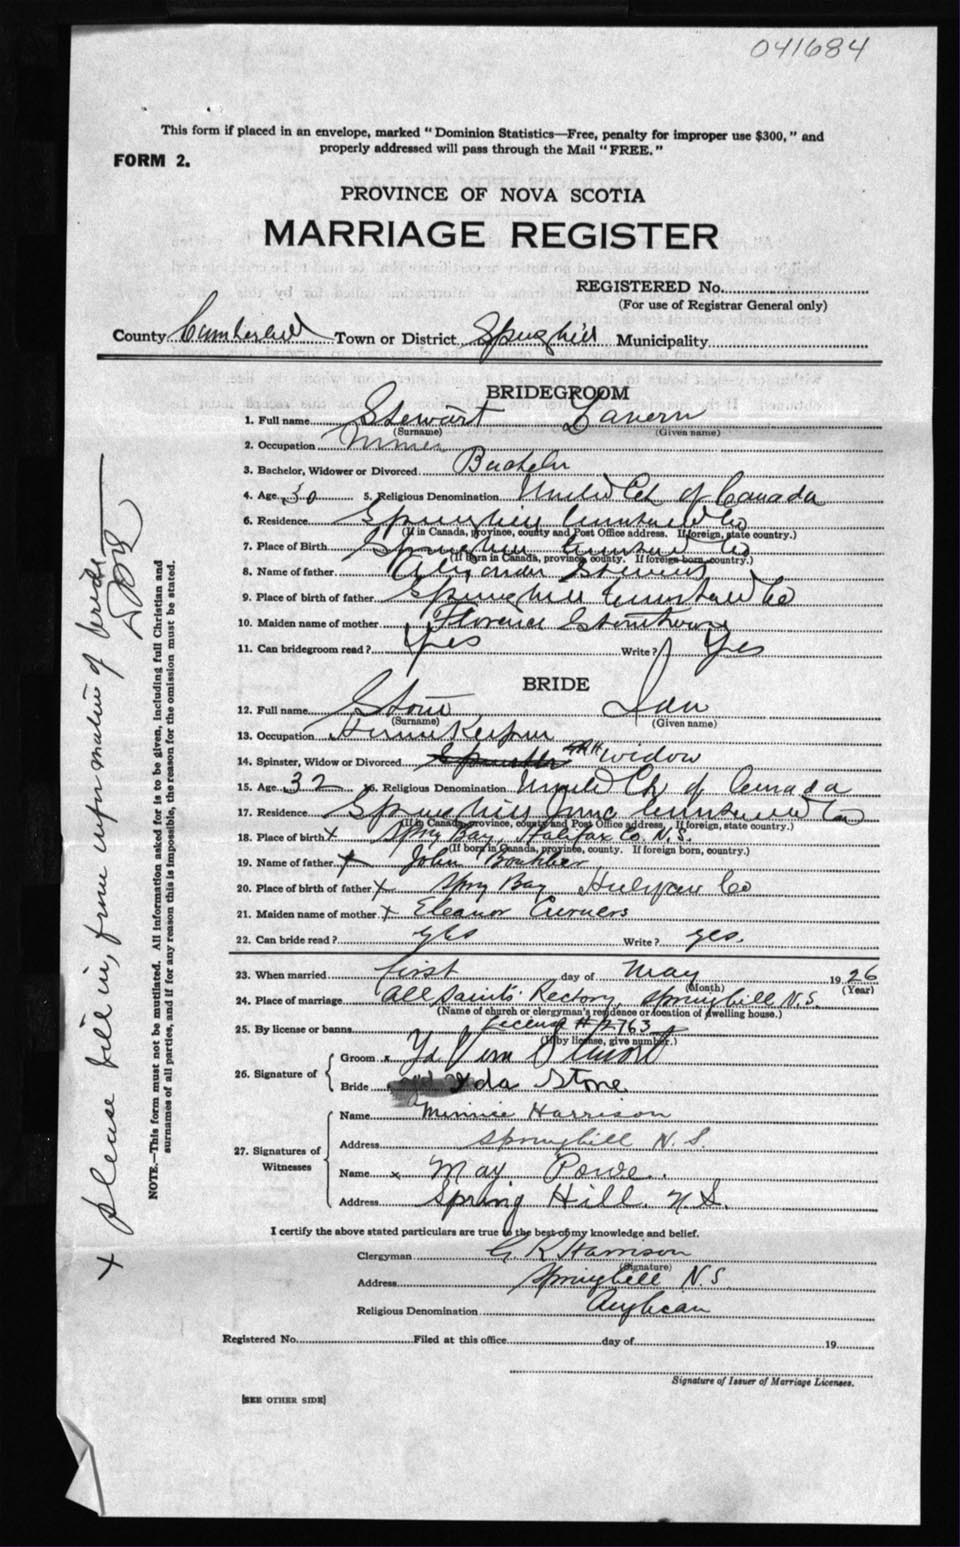 041684
This form if placed in an envelope, marked "Dominion Statistics—Free, penalty for improper use $300," and
properly addressed will pass through the Mail "FREE."
FORM 2.
PROVINCE OF NOVA SCOTIA
MARRIAGE REGISTER
REGISTERED No.
(For use of Registrar General only)
County Cumberland Town or District Springhill Municipality
BRIDEGROOM
1. Full name Stewart Lavern
(Surname) (Given name)
2. Occupation Miner
3. Bachelor, Widower or Divorced Bachelor
4. Age 30 5. Religious Denomination United Ch of Canada
6. Residence Springhill Cumberland Co
(If in Canada, province, county and Post Office address. If foreign, state country.)
7. Place of Birth Springhill Cumberland Co
(If born in Canada, province, county. If foreign born, country.)
8. Name of father Alexander
9. Place of birth of father Springhill Cumberland Co
10. Maiden name of mother Florence
11. Can bridegroom read? Yes Write? Yes
BRIDE
12. Full name Stone Ida
(Surname) (Given name)
13. Occupation House Keeper
14. Spinster, Widow or Divorced Spinster Widow
15. Age 32 16. Religious Denomination United Ch of Canada
17. Residence Springhill Cumberland Co
(If in Canada, province, county and Post Office address. If foreign, state country.)
18. Place of birth x Spry Bay, Halifax Co. N.S.
(If born in Canada, province, county. If foreign born, country.)
19. Name of father x John Boutilier
20. Place of birth of father x Spry Bay Halifax Co
21. Maiden name of mother x Eleanor
22. Can bride read? yes Write? yes.
23. When married first day of May 1926
(Month) (Year)
24. Place of marriage All Saints' Rectory, Springhill N.S.
(Name of church or clergyman's residence or location of dwelling house.)
25. By license or banns License #
(If by license, give number.)
26. Signature of
Groom x La Vern Stewart
Bride Ida Stone
27. Signatures of Witnesses
Name Minnie Harrison
Address Springhill N.S.
Name x May Powe
Address Spring Hill. N.S.
I certify the above stated particulars are true to the best of my knowledge and belief.
Clergyman G R Harrison
(Signature)
Address Springhill N.S.
Religious Denomination Anglican
Registered No. Filed at this office day of 19
Signature of Issuer of Marriage Licenses.
[SEE OTHER SIDE]
NOTE.—This form must not be mutilated. All information asked for is to be given, including full Christian and
surnames of all parties, and if for any reason this is impossible, the reason for the omission must be stated.
x please fill in, from information of bride